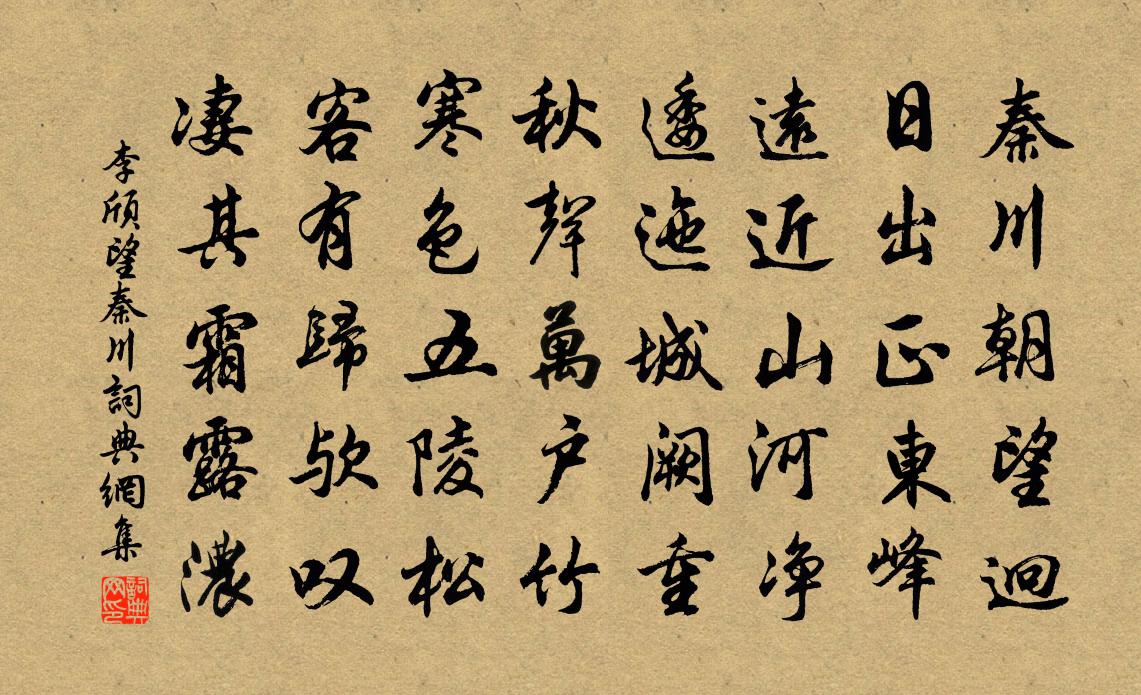 秦川朝望迥
日出正東峰
遠近山河净
逶迤城闕重
秋聲萬户竹
寒色五陵松
客有歸欤叹
凄其霜露濃
李頎望秦川詞典網集
詞典网印